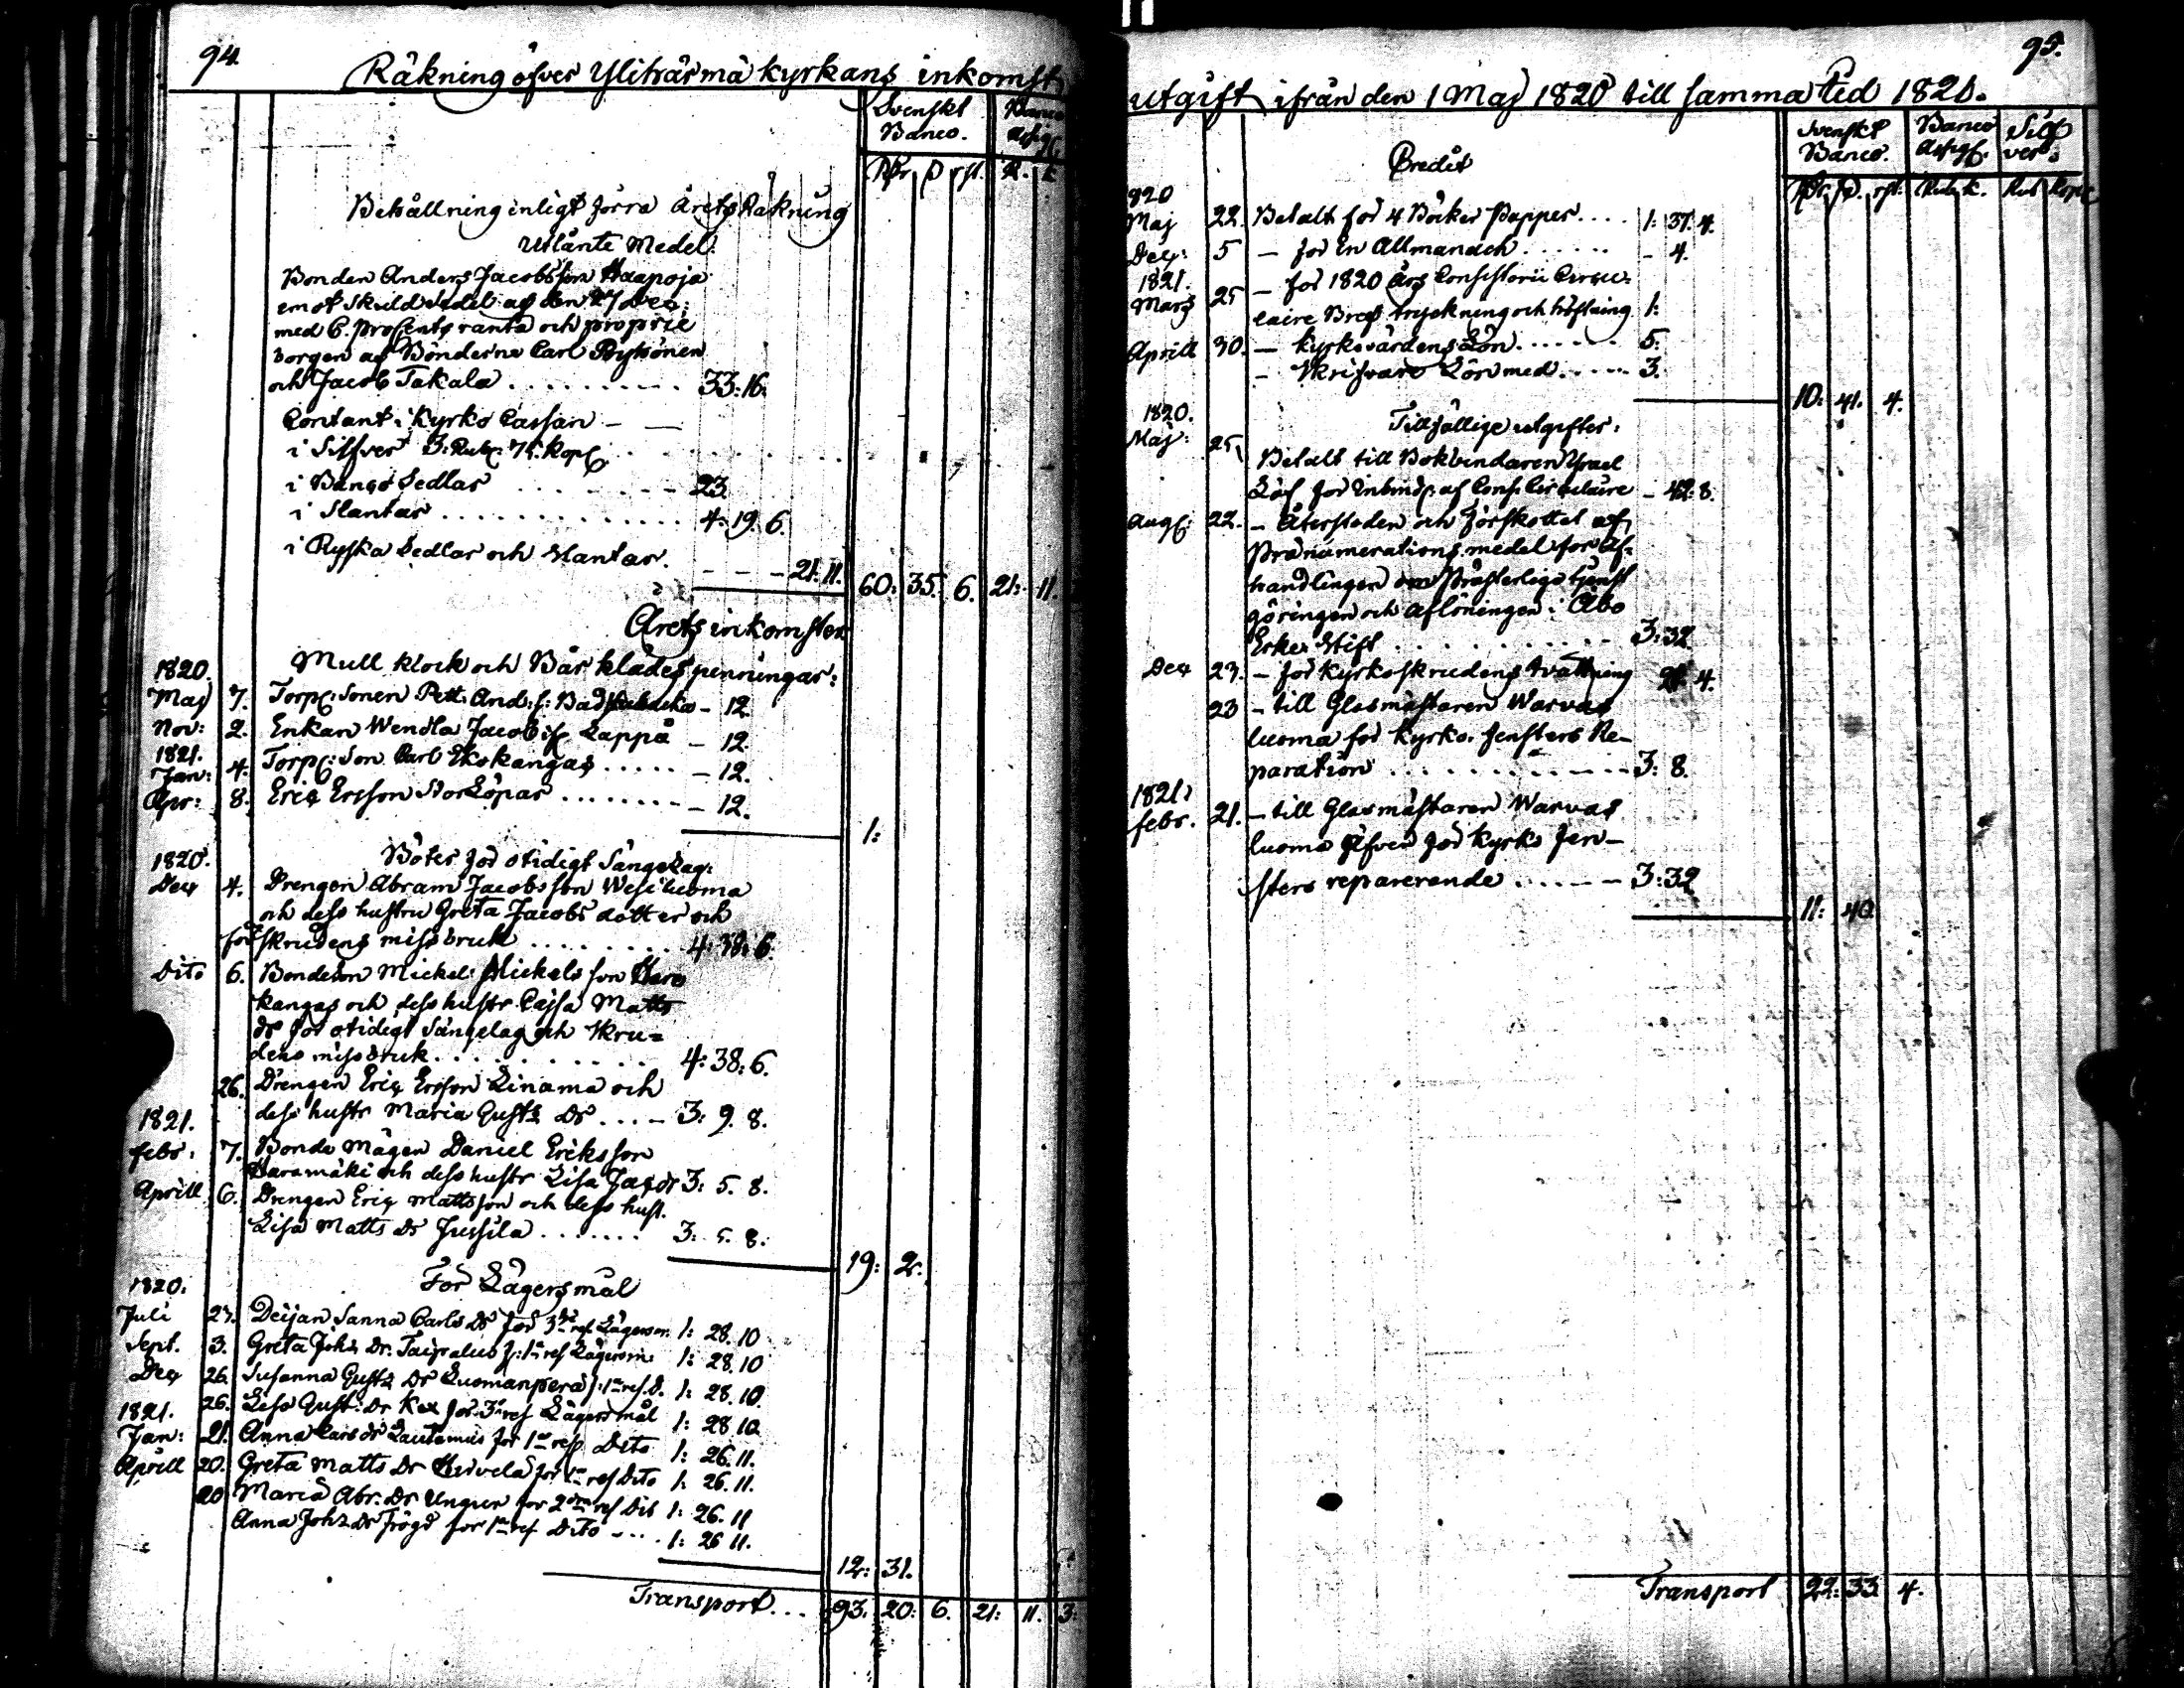 94.
Räkning öfver Ylihärmä kyrkans inkomst
Svenskt Banco.
Banco
Rdr ß rst. R. k
Behållning enligt förra Årets Räkning
Utlånte Medel:
Bonden Anders Jacobsson Haapoja
emot skuldsedel af den 27 Dec:
med 6. proCents ranta och proprie
borgen af Bönderne Carl
och Jacob Takala .......... 33: 16.
Contant i Kyrko Cassan — —
i Silfver 3: Rub: 75. Kop:
i Banco Sedlar ....... 23
i Slantar ............. 4: 19. 6.
i Ryska Sedlar och Slantar. - - - 21. 11.
60: 35. 6. 21: 11.
Årets inkomster
Mull klock och Bår klädes penningar:
1820.
Maj 7. Torp: Sonen Pett: And: s: - 12.
Nov: 2. Enkan Wendla Jacobs Lappå - 12.
1821.
Jan: 4. Torp: Son Carl Ekokangas ..... - 12.
Apr: 8. Eric Ersson StorLöpar ........ - 12.
1:
1820. Böter för otidigt Sängelag:
Dec 4. Drengen Abram Jacobsson Wesiluoma
och dess hustru Greta Jacobs dotter och
för skrudens missbruk ......... 4: 38: 6.
Dito 6. Bondeson Mickel Mickelsson
kangas och dess hustr Cajsa Matts
dr för otidigt Sängelag och Skru=
dens missbruk ............ 4: 38: 6.
26. Drengen Eric Ersson Linama och
dess hustr Maria Gusts Dr .... - 3: 9. 8.
1821.
febr: 7. Bonde Mågen Daniel Eriksson
Haramäki och dess hustr Lisa Jac dr 3: 5. 8.
Aprill 6. Drengen Eric Mattsson och dess hust.
Lisa Matts Dr Jussila ....... 3: 5. 8.
19: 2.
För Lägersmål
1820.
Juli 27. Deijan Sanna Carls Dr för 3die res. Lägersm: 1: 28. 10
Sept. 3. Greta Joh: Dr. Taipalus f: 1a res Lägersm: 1: 28. 10
Dec 26. Susanna Gusts Dr Luomanperä f: 1a res. d. 1: 28. 10.
26. Lisa Gust: Dr Kex för 3e res Lägersmål 1: 28. 10
1821.
Jan: 21. Anna Cars dr Lautamus för 1a res Dito 1: 26. 11.
Aprill 20. Greta Matts Dr för 1a res Dito 1: 26. 11.
20 Maria Abr. Dr Ungur för 2dra res Dit 1: 26. 11
Anna Joh: Dr Frögd för 1a res Dito .... 1: 26 11.
12: 31.
Transport... 93. 20: 6. 21: 11. 3:
95.
utgift ifrån den 1 Maj 1820 till samma tid 1821.
Svenskt Banco.
Banco Assign.
Silfver:
Rdr. ß. rst: Rub. k. Rub Kopec
Credit
1820
Maj 22. Betalt för 4 Böcker Papper .... 1: 37. 4.
Dec: 5 — för En Allmanach ...... - 4.
1821.
Mars 25 — för 1820 års Consistorii Circu:
laire Bref tryckning och häftning 1:
Aprill 30. — Kyrkovärdens Lön ...... 5:
— Skrifvare Lön med ..... 3.
10: 41. 4.
1820. Tillfällige utgifter:
Maj: 25, Betalt till Bokbindaren Israel
Löf för inbind: af Cons: Cirkulaire - 42: 8.
Aug: 22. — Återstoden och förskottet af
Pränumerations medel för Af=
handlingen om Prästerliga tjenst
göringen och aflöningen i Åbo
Erke Stift .......... 3: 32
Dec 23. — för Kyrkoskrudens tvättning 21. 4.
23 — till Glasmästaren Warvas
luoma för Kyrko fensters Re-
paration .......... 3: 8.
1821:
febr. 21. — till Glasmästaren Warvas
luoma äfven för Kyrko fen-
sters reparerande ..... 3: 32
11: 40
Transport 22: 33 4.